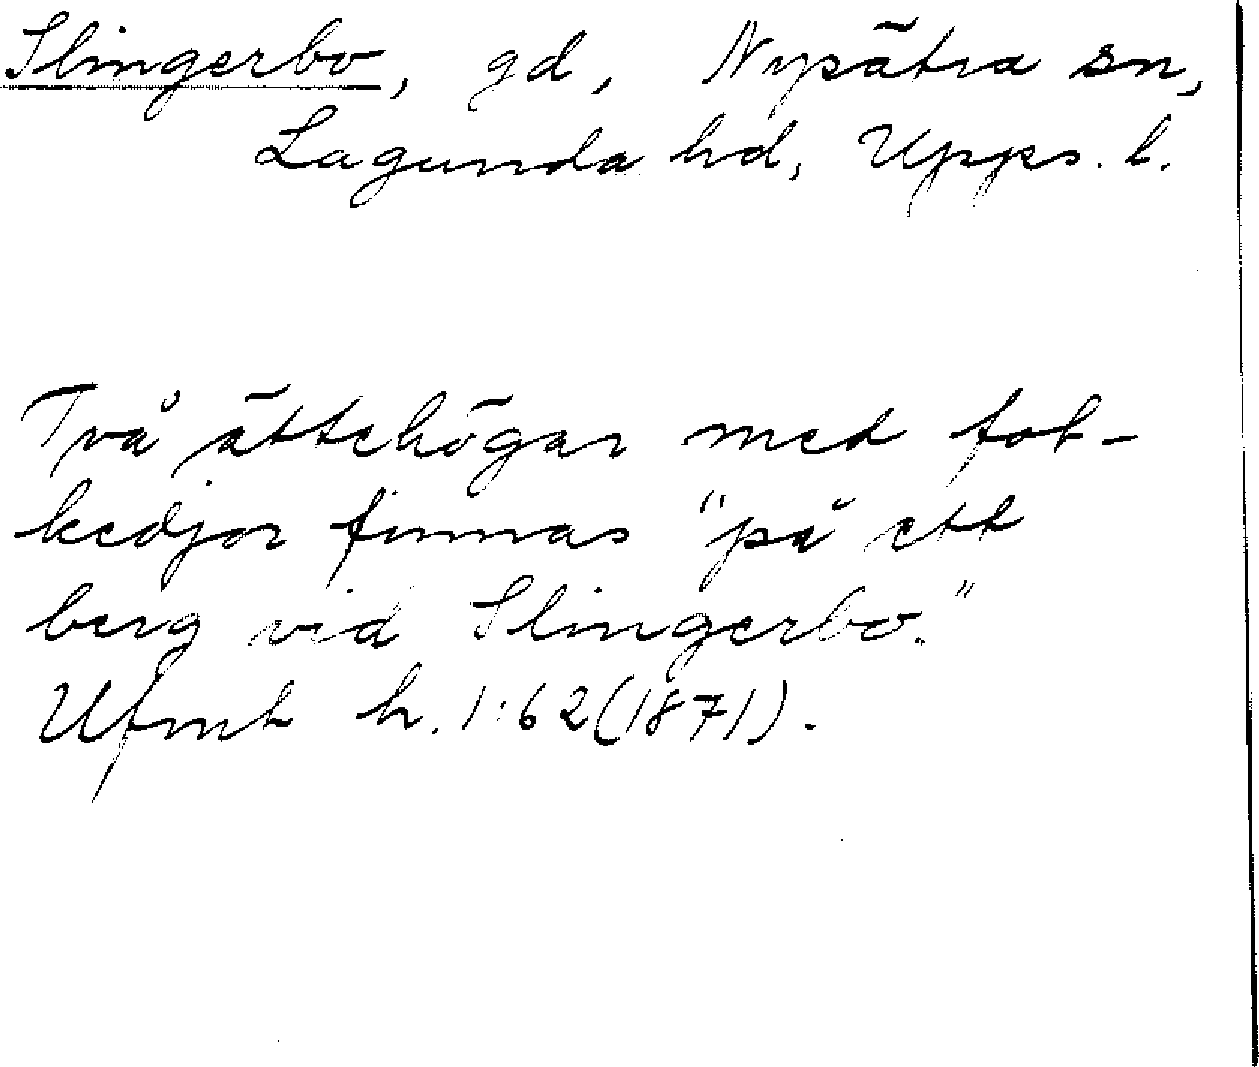 Slingerbo, gd, Nysätra sn,
Lagunda hd, Upps. l.
Två ättehögar med fot-
kedjor finnas "på ett
berg vid Slingerbo."
Ufmt h. 1:62 (1871).